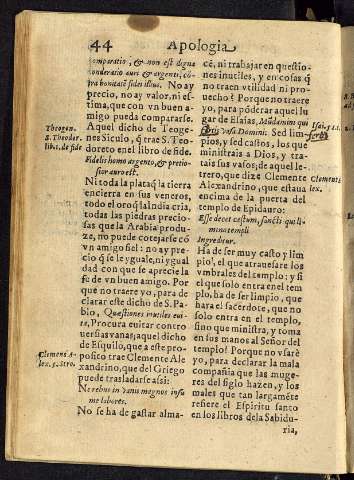 44 Apologia
comparatio, & non est digna
ponderatio auri & argenti, cõ-
tra bonitatẽ fidei illius. No ay
precio, no ay valor, ni es-
tima, que con vn buen a-
migo pueda compararse.
Theogen.
S. Theodor.
lib. 1. de fide
Aquel dicho de Teoge-
nes Siculo, q̃ trae S. Teo-
doreto en el libro de fide.
Fidelis homo argento, & pretio-
sior auro est.
Ni toda la plata q̃ la tierra
encierra en sus veneros,
todo el oro q̃ la India cria,
todas las piedras precio-
sas que la Arabia produ-
ze, no puede cotejarse cõ
vn amigo fiel: no ay pre-
cio q̃ se le yguale, ni ygual
dad con que se aprecie la
fe de vn buen amigo. Por
que no traere yo, para de
clarar este dicho de S. Pa-
blo, Quæstiones inutiles eui-
te, Procura euitar contro
uersias vanas; aquel dicho
de Esquilo, que a este pro-
Clemens A-
lex. 5. stro.
posito trae Clemente Ale
xandrino, que del Griego
puede trasladarse assi:
Ne rebus in vanis magnos insu
me labores.
No se ha de gastar alma-
cẽ, ni trabajar en questio-
nes inutiles, y en cosas q̃
no traen vtilidad ni pro-
uecho? Porque no traere
yo, para põderar aquel lu-
gar de Elaias, Mũdamini qui
Isai. 52.
fertis vasa Domini. Sed lim-
pios, y sed castos, los que
ministrais a Dios, y tra-
tais sus vasos; de aquel le-
trero, que dize Clemente
Clemente
lex.
Alexandrino, que estaua
encima de la puerta del
templo de Epidauro:
Esse decet castum, sancti qui li-
mina templi
Ingreditur.
Ha de ser muy casto y lim
pio, el que atrauesare los
vmbrales del templo: y si
el que solo entra en el tem
plo, ha de ser limpio, que
hara el sacerdote, que no
solo entra en el templo,
sino que ministra, y toma
en los manos al Señor del
templo? Porque no vsarè
yo, para declarar la mala
compañia que las muge-
res del siglo hazen, y los
males que tan largamẽte
refiere el Espiritu santo
en los libros de la Sabidu-
ria,